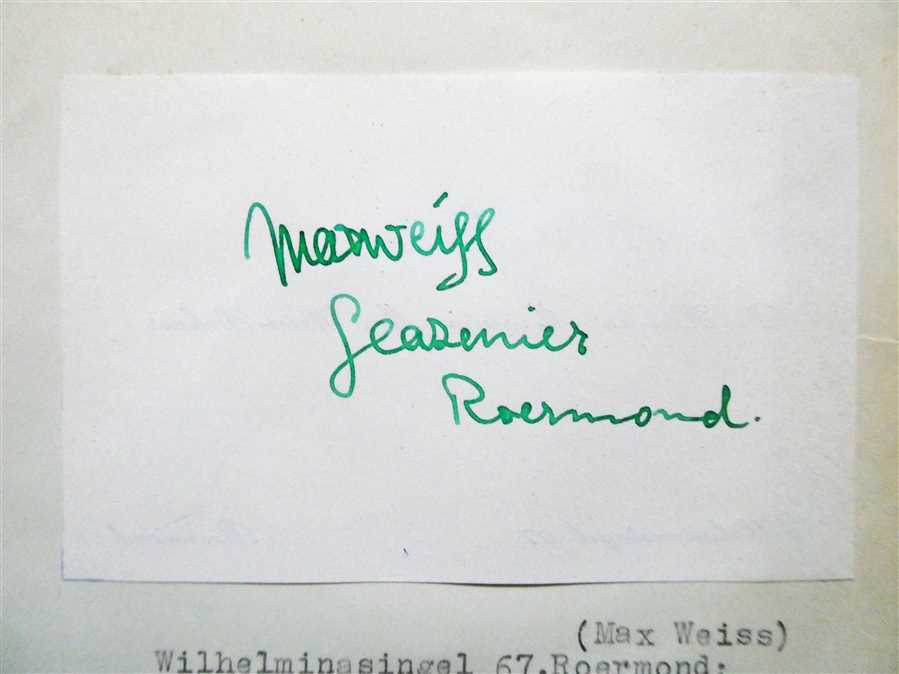 Max Weiss
Glazenier
Roermond.
(Max Weiss)
Wilhelminasingel 67.Roermond;